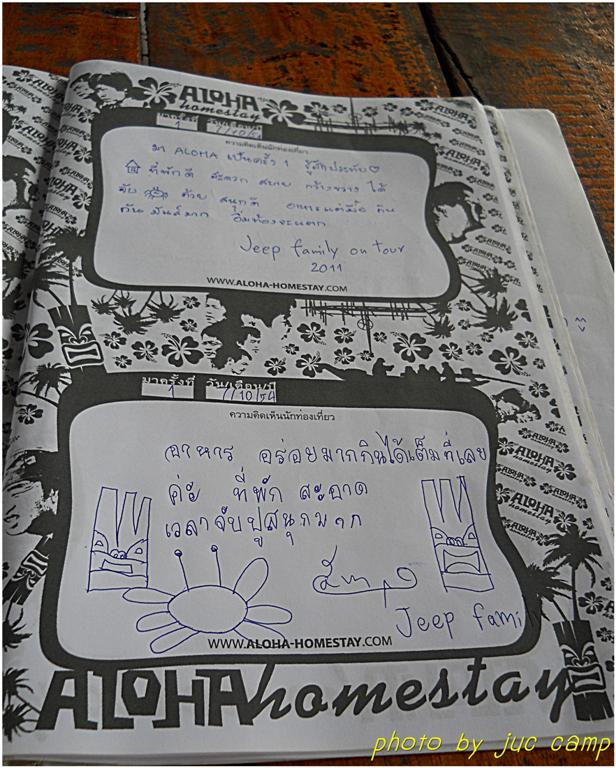 ALOHA
homestay
1 7/10/54
ความคิดเห็นนักท่องเที่ยว
มา ALOHA เป็นครั้ง 1 รู้สึกประทับ♡
ที่พักดี สะดวก สบาย กว้างขวาง ได้
จับ ด้วย สนุกดี อาหารแต่มื้อ กิน
กัน มันส์มาก อิ่มท้องจะแตก
Jeep family on tour
2011
WWW.ALOHA-HOMESTAY.COM
มาครั้งที่ วัน/เดือน/ปี
1 7/10/54
ความคิดเห็นนักท่องเที่ยว
อาหาร อร่อยมากกินได้เต็มที่เลย
ค่ะ ที่พัก สะอาด
เวลาจับปูสนุกมาก
Jeep fami
WWW.ALOHA-HOMESTAY.COM
ALOHA homestay
photo by juc camp